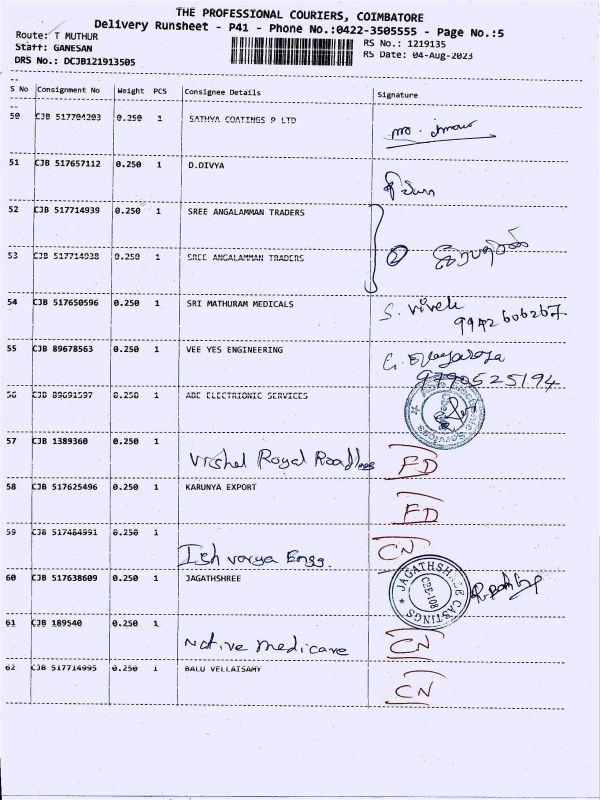 THE PROFESSIONAL COURIERS, COIMBATORE
Delivery Runsheet - P41 - Phone No.:0422-3505555 - Page No.:5
Route: T MUTHUR
RS No.: 1219135
Staff: GANESAN
RS Date: 04-Aug-2023
DRS No.: DCJB121913505
S No Consignment No Weight PCS Consignee Details Signature
50 CJB 517704203 0.250 1 SATHYA COATINGS P LTD
51 CJB 517657112 0.250 1 D.DIVYA
52 CJB 517714939 0.250 1 SREE ANGALAMMAN TRADERS
53 CJB 517714938 0.250 1 SREE ANGALAMMAN TRADERS
54 CJB 517650596 0.250 1 SRI MATHURAM MEDICALS S. Vivek
9942606267
55 CJB 89678563 0.250 1 VEE YES ENGINEERING
9790525194
56 CJB 89691597 0.250 1 ABE ELECTRIONIC SERVICES
57 CJB 1389360 0.250 1
Vishal Royal Roadlines FD
58 CJB 517625496 0.250 1 KARUNYA EXPORT
FD
59 CJB 517484991 0.250 1
Ishvarya Engg. CN
60 CJB 517638609 0.250 1 JAGATHSHREE JAGATHSHREE CASTINGS CBE-108
61 CJB 189540 0.250 1
Native medicare CN
62 CJB 517714995 0.250 1 BALU VELLAISAMY
CN